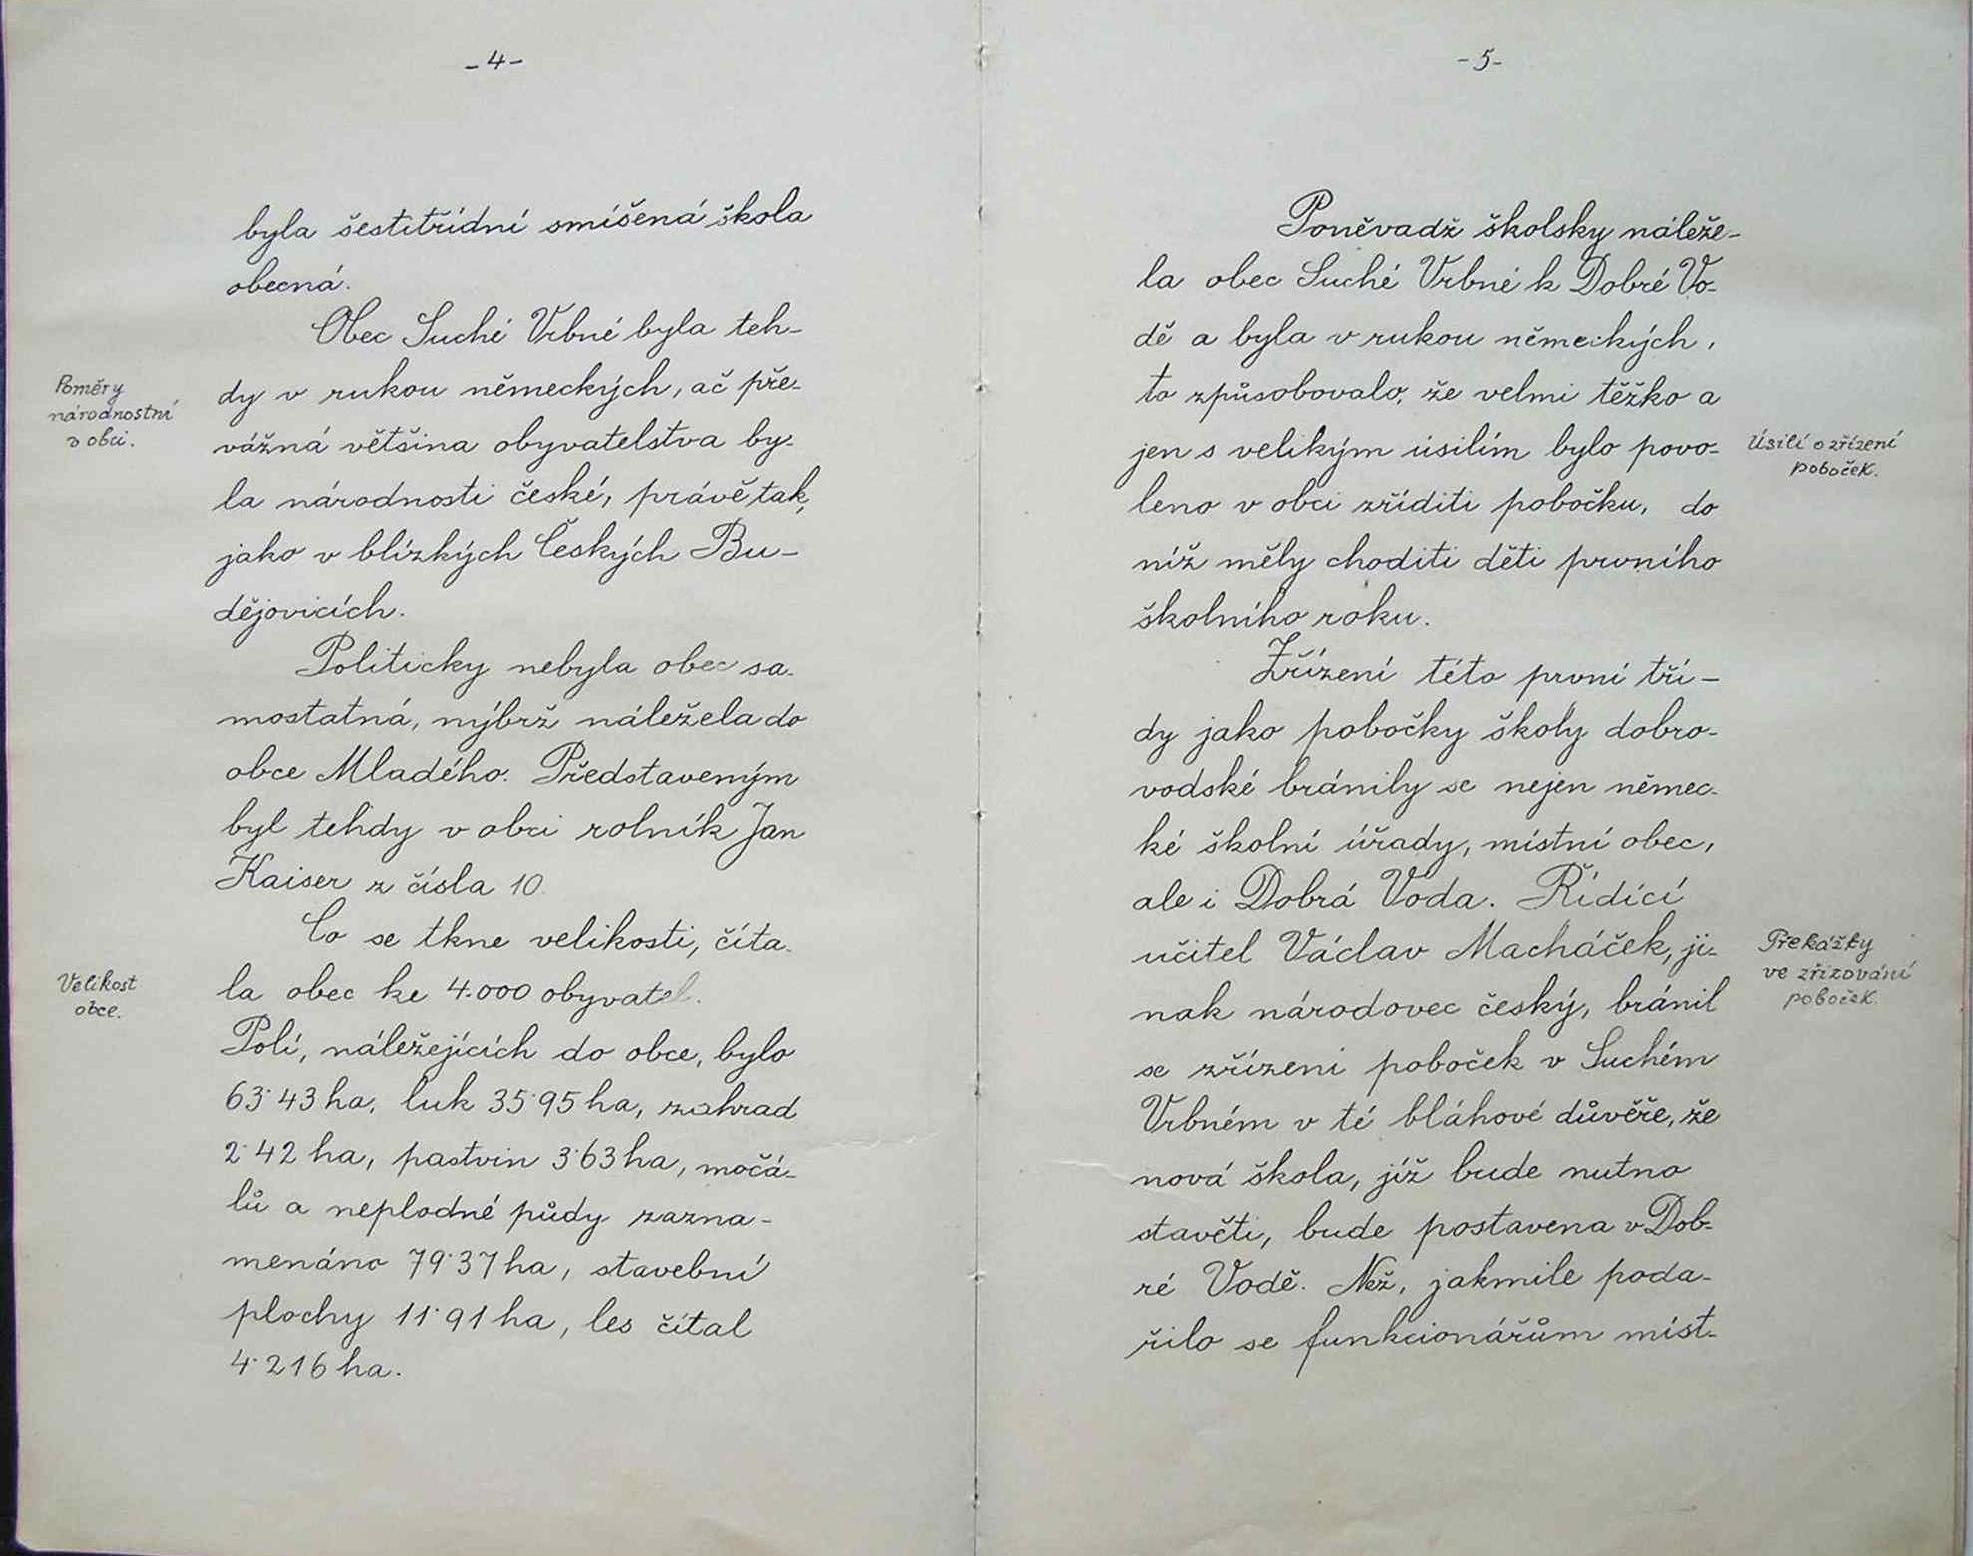 -4-
byla šestitřídní smíšená škola
obecná.
Obec Suché Vrbné byla teh-
Poměry
národnostní
v obci.
dy v rukou německých, ač pře-
vážná většina obyvatelstva by-
la národnosti české, právě tak,
jako v blízkých Českých Bu-
dějovicích.
Politicky nebyla obec sa-
mostatná, nýbrž náležela do
obce Mladého. Představeným
byl tehdy v obci rolník Jan
Kaiser z čísla 10.
Co se tkne velikosti, číta-
Velikost
obce.
la obec ke 4.000 obyvatel.
Polí, náležejících do obce, bylo
63·43 ha, luk 35·95 ha, zahrad
2·42 ha, pastvin 3·63 ha, močá-
lů a neplodné půdy zazna-
menáno 79·37 ha, stavební
plochy 11·91 ha, les čítal
4·216 ha.
-5-
Poněvadž školsky náleže-
la obec Suché Vrbné k Dobré Vo-
dě a byla v rukou německých,
to způsobovalo, že velmi těžko a
jen s velikým úsilím bylo povo-
Úsilí o zřízení
poboček.
leno v obci zříditi pobočku, do
níž měly choditi děti prvního
školního roku.
Zřízení této první tří-
dy jako pobočky školy dobro-
vodské bránily se nejen němec-
ké školní úřady, místní obec,
ale i Dobrá Voda. Řídící
učitel Václav Macháček, ji-
Překážky
ve zřizování
poboček.
nak národovec český, bránil
se zřízení poboček v Suchém
Vrbném v té bláhové důvěře, že
nová škola, jíž bude nutno
stavěti, bude postavena v Dob-
ré Vodě. Než, jakmile poda-
řilo se funkcionářům míst-